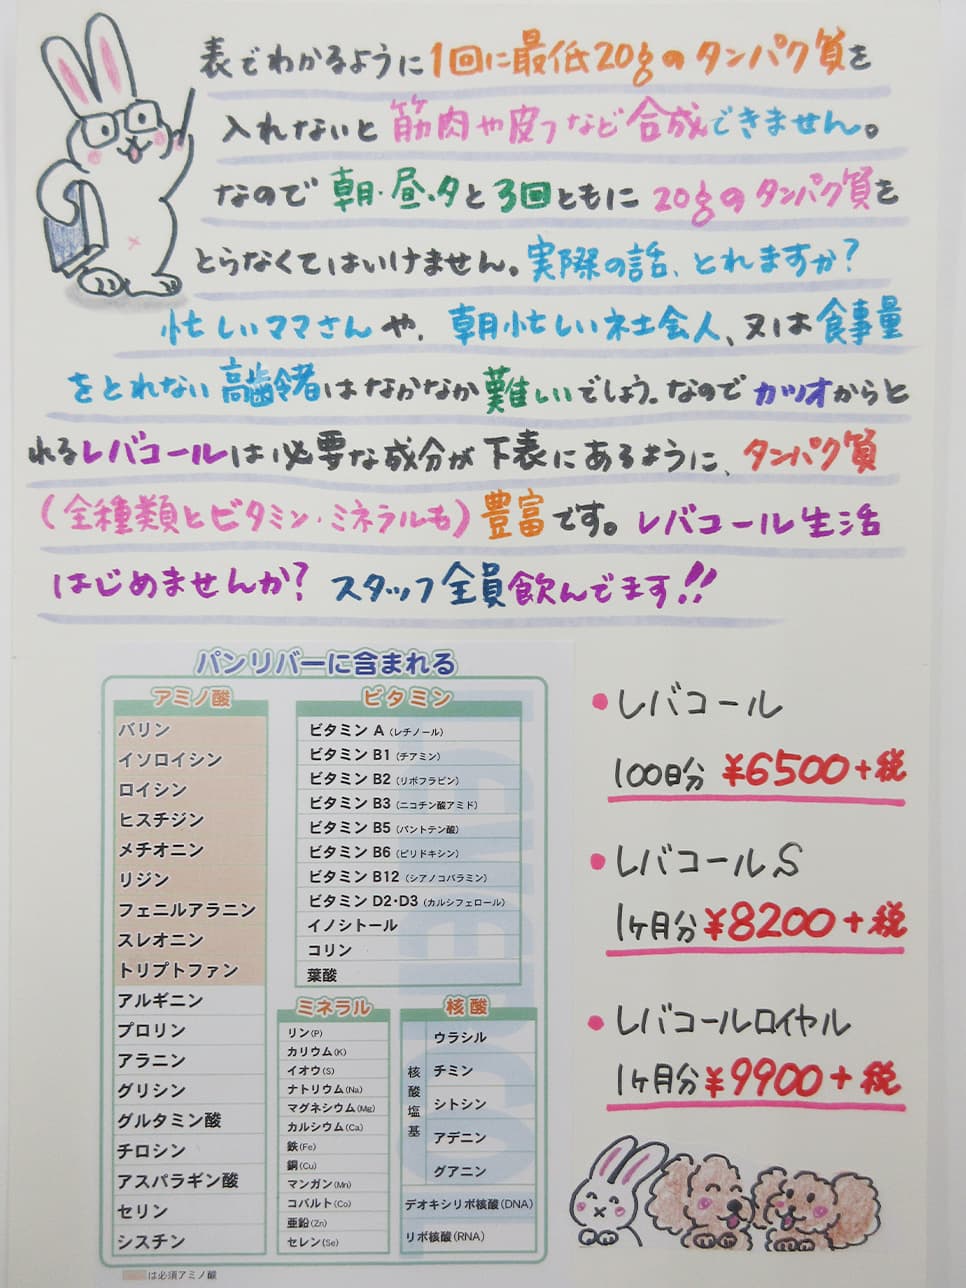 表でわかるように1回に最低20gのタンパク質を
入れないと筋肉や皮フなど合成できません。
なので朝・昼・夕と3回ともに20gのタンパク質を
とらなくてはいけません。実際の話、とれますか？
忙しいママさんや、朝忙しい社会人、又は食事量
をとれない高齢者はなかなか難しいでしょう。なのでカツオからと
れるレバコールは必要な成分が下表にあるように、タンパク質
(全種類とビタミン・ミネラルも)豊富です。レバコール生活
はじめませんか？スタッフ全員飲んでます!!
パンリバーに含まれる
アミノ酸
バリン
イソロイシン
ロイシン
ヒスチジン
メチオニン
リジン
フェニルアラニン
スレオニン
トリプトファン
アルギニン
プロリン
アラニン
グリシン
グルタミン酸
チロシン
アスパラギン酸
セリン
シスチン
は必須アミノ酸
ビタミン
ビタミン A (レチノール)
ビタミン B1 (チアミン)
ビタミン B2 (リボフラビン)
ビタミン B3 (ニコチン酸アミド)
ビタミン B5 (パントテン酸)
ビタミン B6 (ピリドキシン)
ビタミン B12 (シアノコバラミン)
ビタミン D2・D3 (カルシフェロール)
イノシトール
コリン
葉酸
ミネラル
リン(P)
カリウム(K)
イオウ(S)
ナトリウム(Na)
マグネシウム(Mg)
カルシウム(Ca)
鉄(Fe)
銅(Cu)
マンガン(Mn)
コバルト(Co)
亜鉛(Zn)
セレン(Se)
核酸
核酸塩基
ウラシル
チミン
シトシン
アデニン
グアニン
デオキシリボ核酸(DNA)
リボ核酸(RNA)
•レバコール
100日分 ¥6500+税
•レバコールS
1ヶ月分¥8200+税
•レバコールロイヤル
1ヶ月分¥9900+税